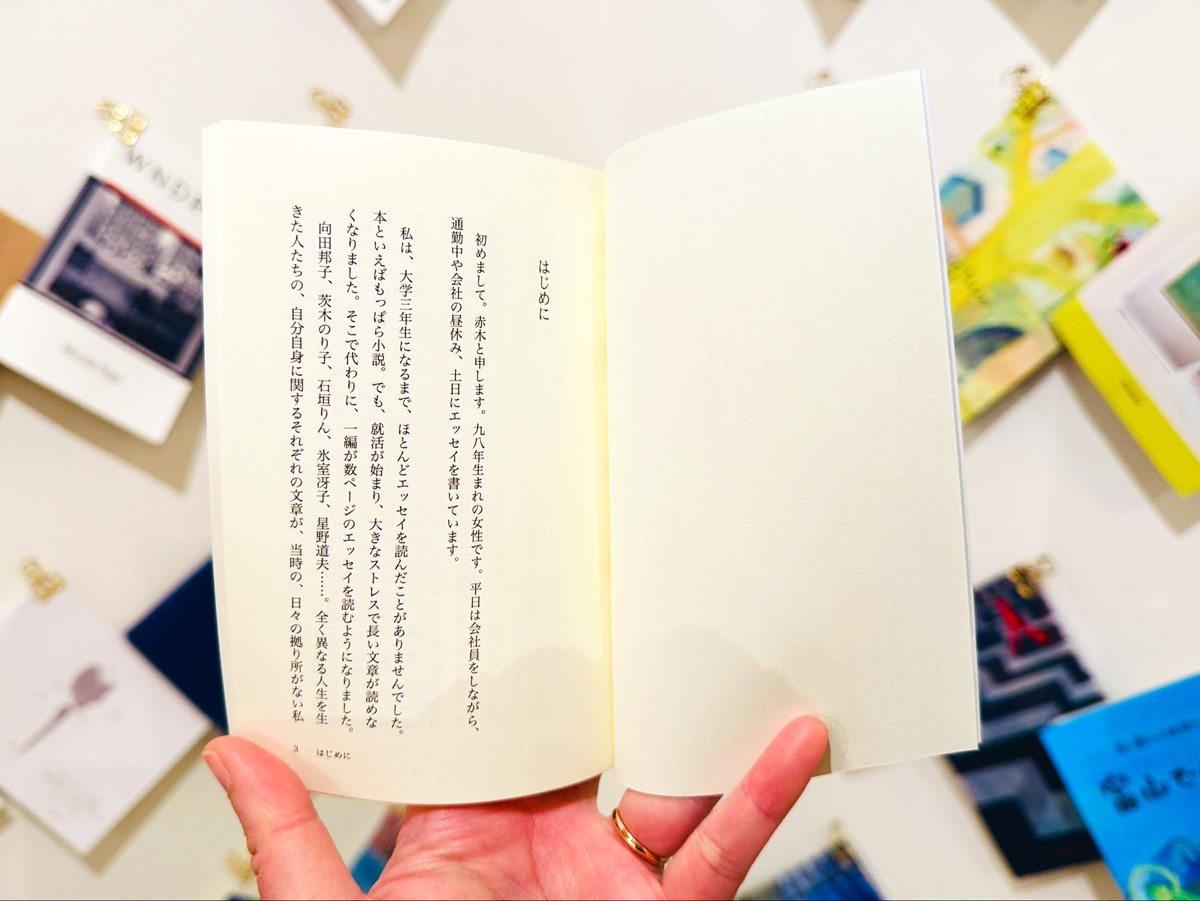 はじめに
初めまして。赤木と申します。九八年生まれの女性です。平日は会社員をしながら、
通勤中や会社の昼休み、土日にエッセイを書いています。
私は、大学三年生になるまで、ほとんどエッセイを読んだことがありませんでした。
本といえばもっぱら小説。でも、就活が始まり、大きなストレスで長い文章が読めな
くなりました。そこで代わりに、一編が数ページのエッセイを読むようになりました。
向田邦子、茨木のり子、石垣りん、氷室冴子、星野道夫……。全く異なる人生を生
きた人たちの、自分自身に関するそれぞれの文章が、当時の、日々の拠り所がない私
3 はじめに
富山で